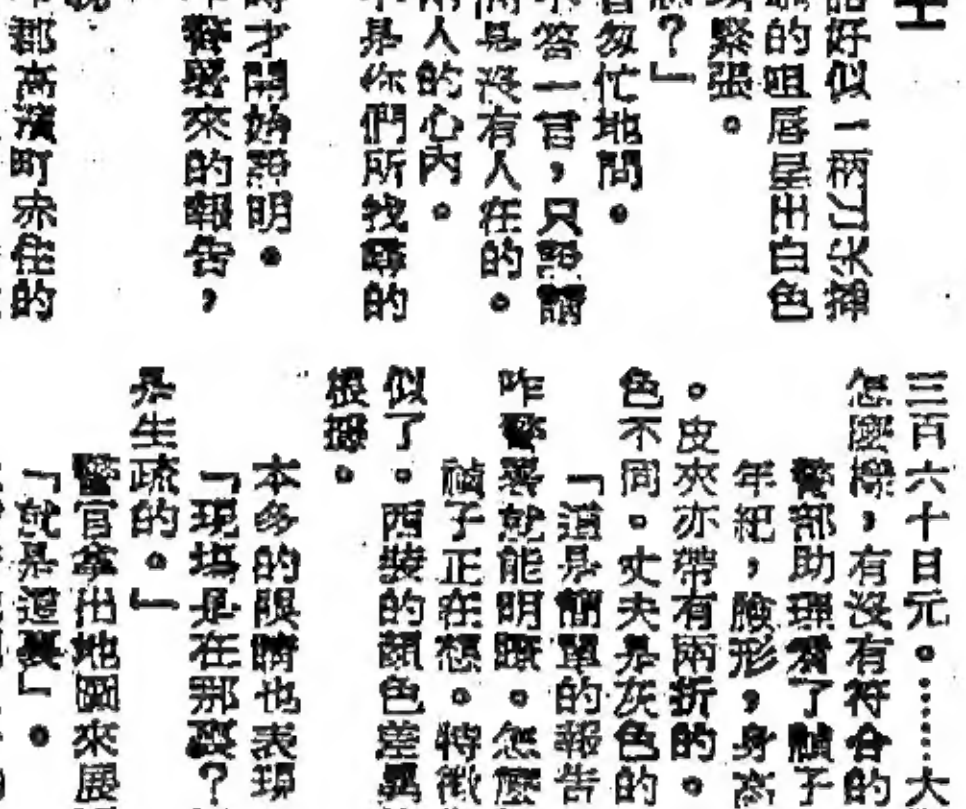 士
話好似一兩尖山掉
的咀唇呈出白色
緊張。
？」
匆忙地問。
不答一言，只
是沒有人在的。
人的心內。
不是你們所找尋的
時才開始說明。
警署來的報告，
郡高濱町未住的
三百六十日元。……大
怎麼樣，有沒有符合的
警部助理看了禎子
年紀，臉形，身高
。皮夾亦帶有兩折的。
色不同。丈夫是灰色的
「這是簡單的報告
咋警署就能明瞭。怎麼
禎子正在想。特徵
似了。西裝的顏色差異
根據。
本多的眼睛也表現
「現場是在那裏？
是生疏的。」
警官拿出地圖來展
「就是這裏」。